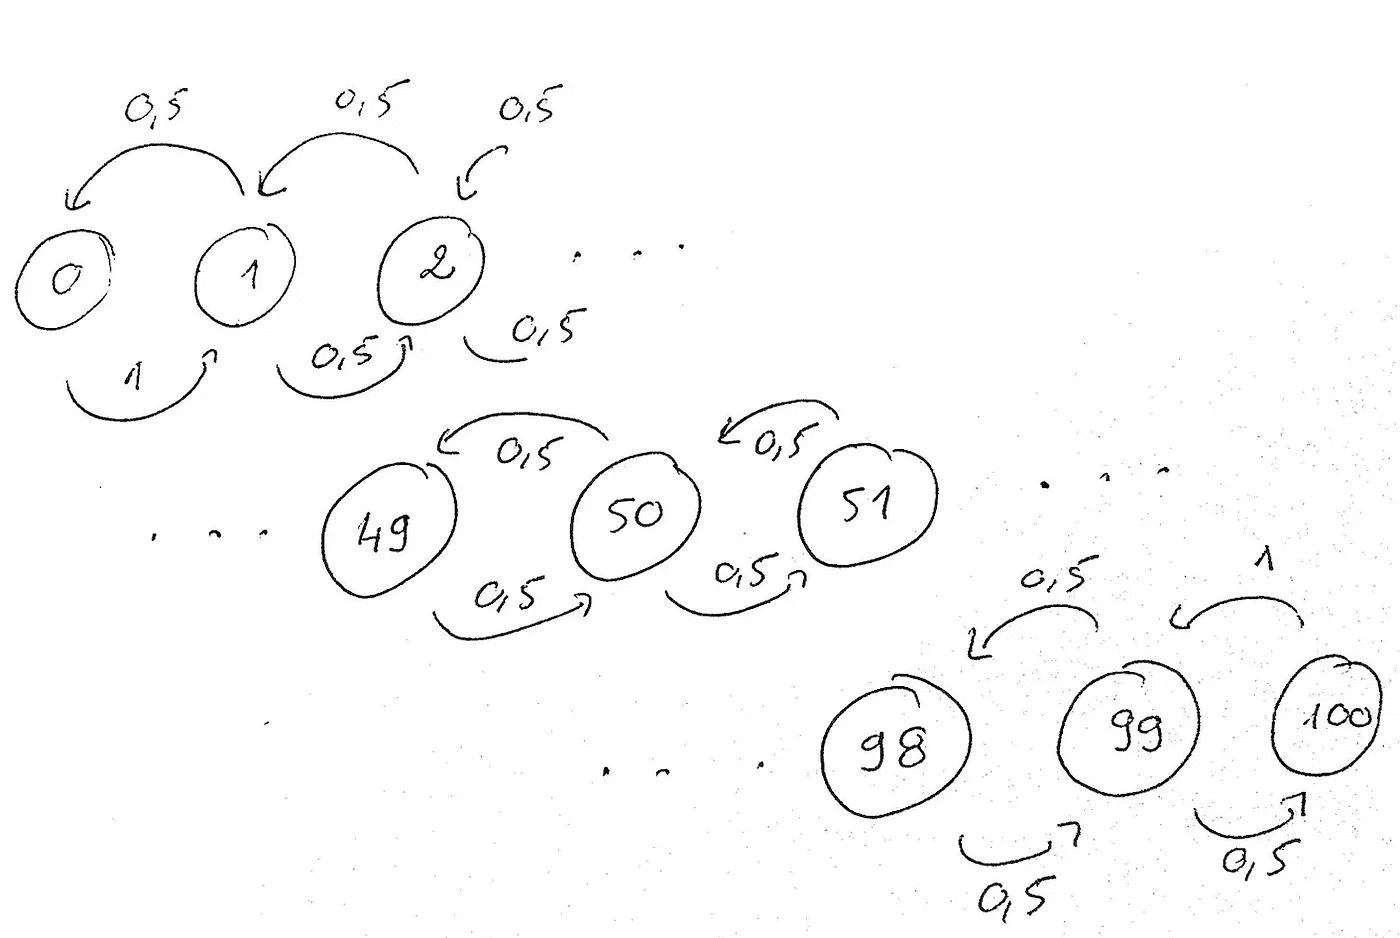 0,5 0,5 0,5
0 1 2 . . .
1 0,5 0,5
0,5 0,5
. . . 49 50 51 . . .
0,5 0,5
0,5 1
. . . 98 99 100
0,5 0,5